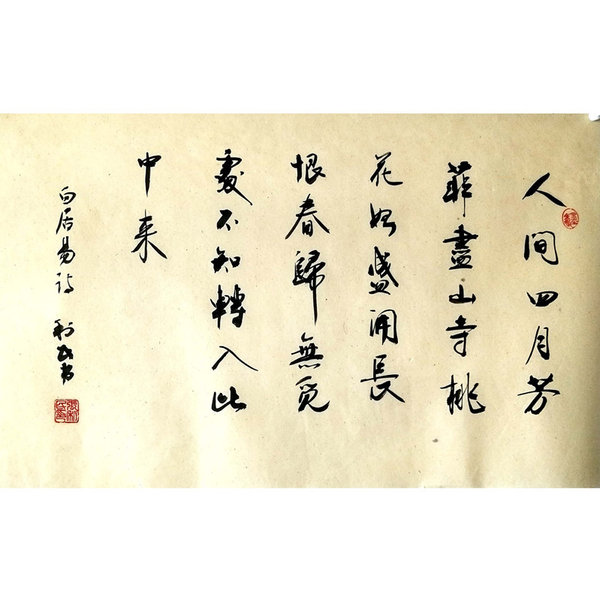 人间四月芳
菲盡山寺桃
花始盛開長
恨春歸無覓
處不知轉入此
中来
白居易诗 利民书